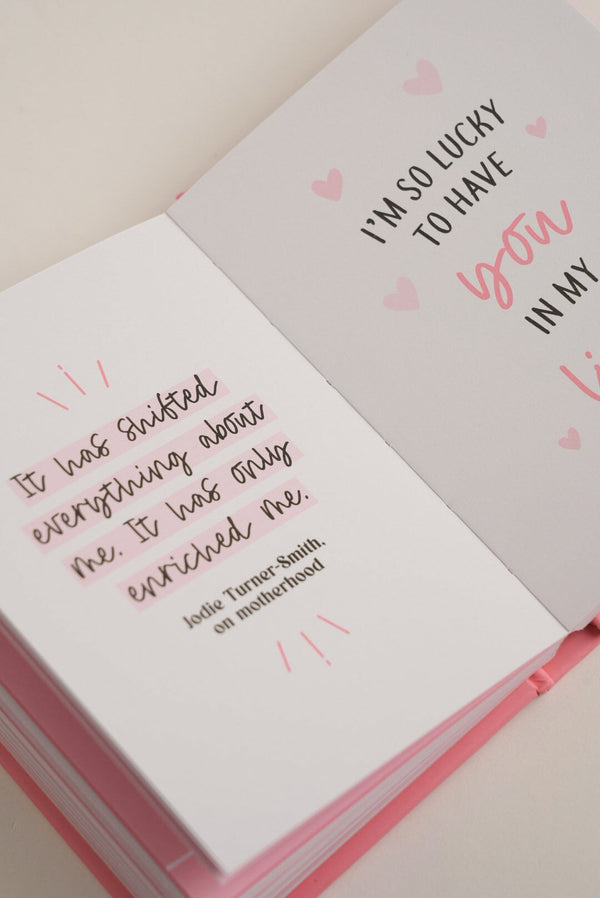 It has shifted
everything about
me. It has only
enriched me.
Jodie Turner-Smith,
on motherhood
I'M SO LUCKY
TO HAVE
you
IN MY